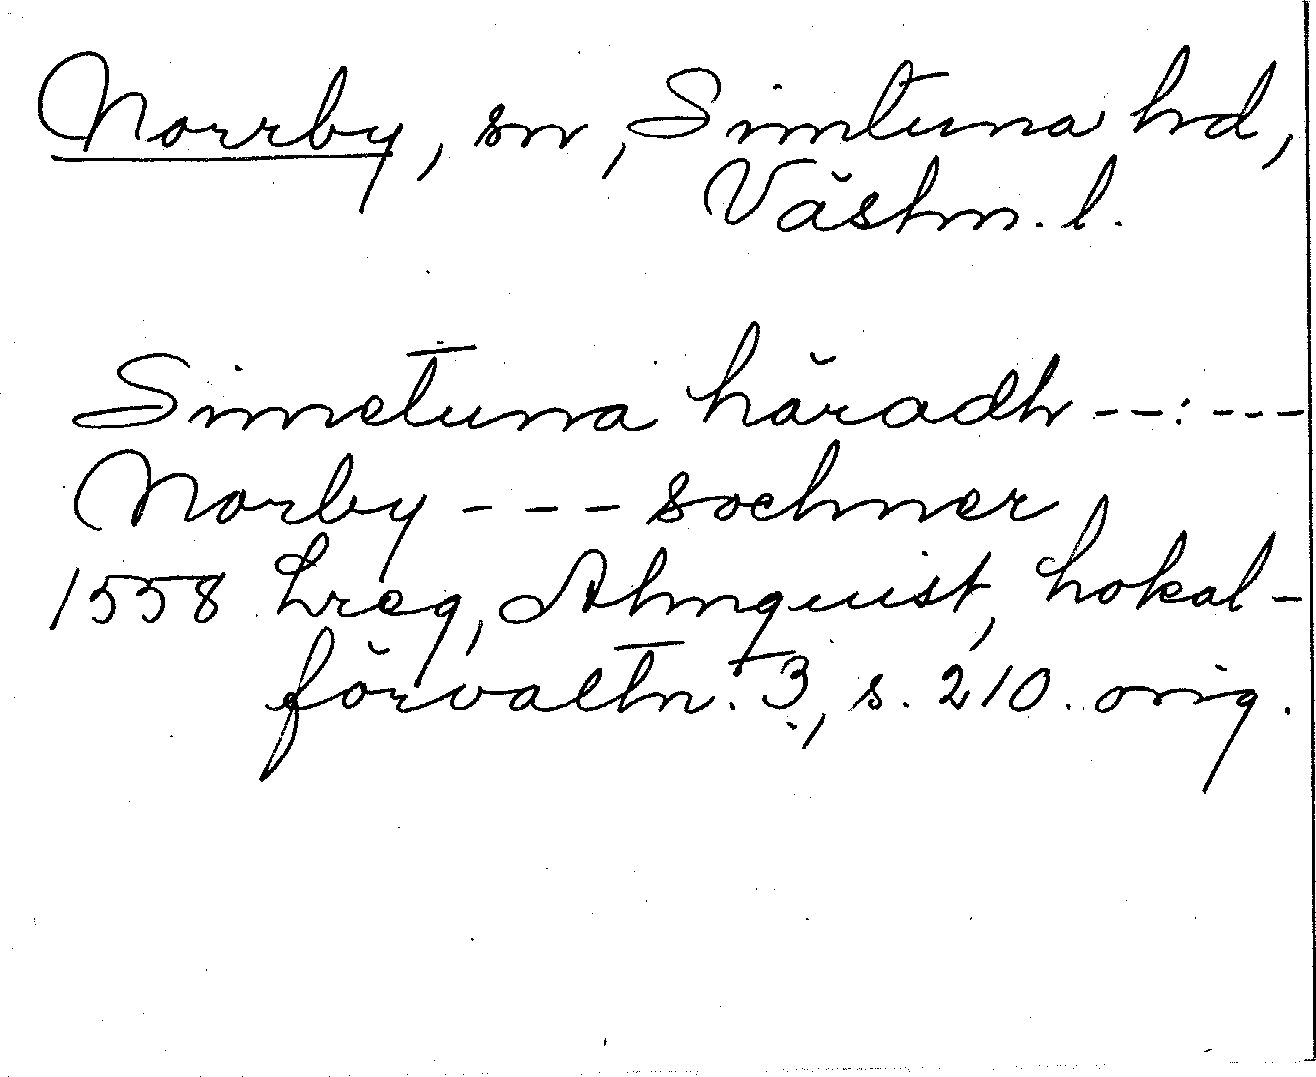 Norrby, sn, Simtuna hd,
Västm. l.
Simetuna häradh --:---
Norby --- sochner
1558 Lreg, Almquist, Lokal-
förvaltn. 3, s. 210. orig.